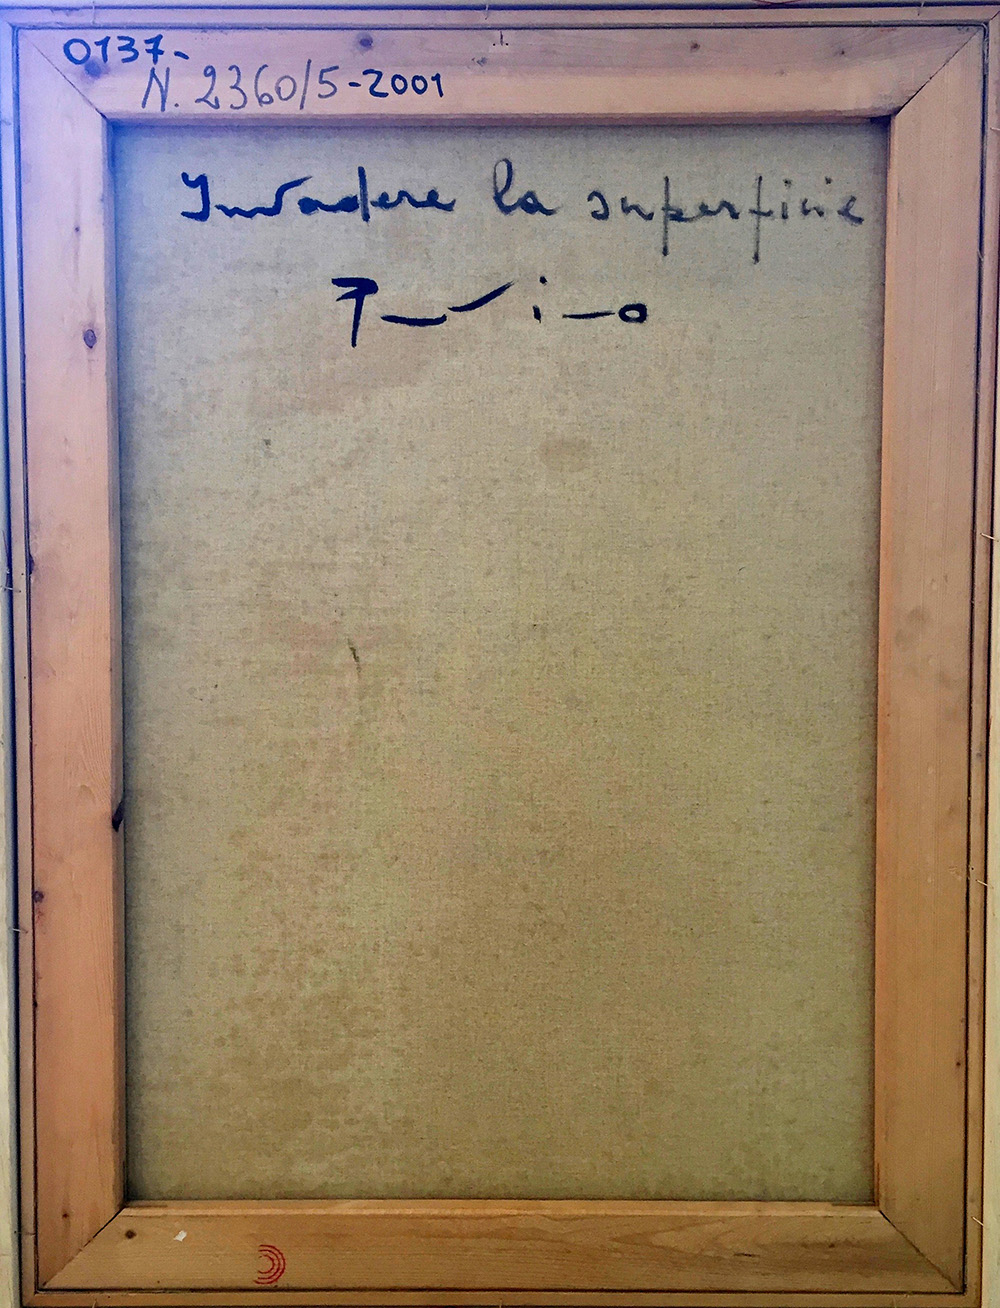 0137-
N. 2360/5-2001
Invadere la superficie